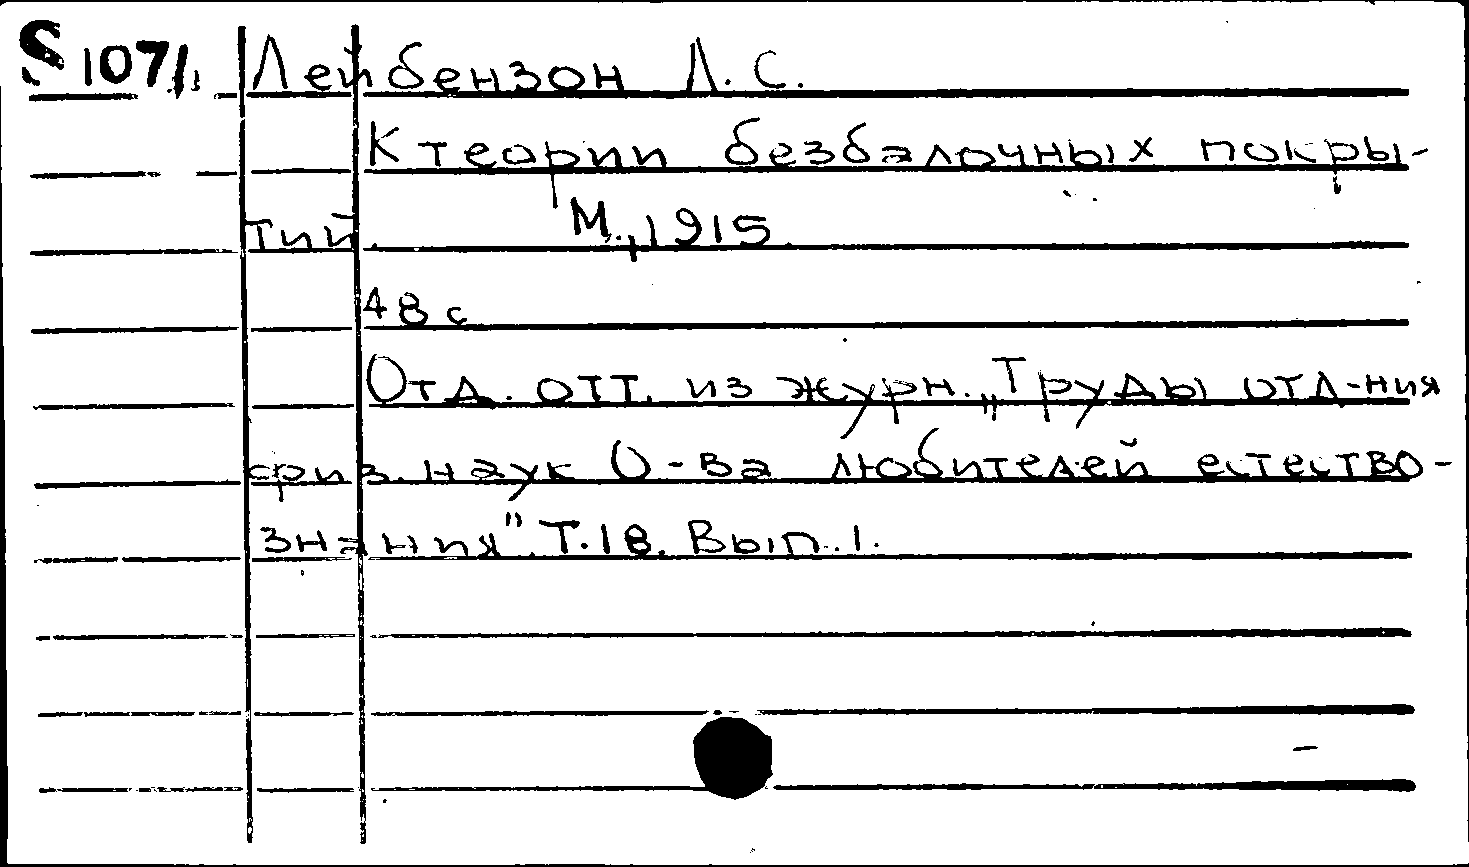 S 1071 Лейбензон Л. С.
К теории безбалочных покры-
тий. М., 1915.
48 с
Отд. отт. из журн. „Труды отд-ния
физ. наук О-ва любителей естество-
знания". Т. 18. Вып. 1.